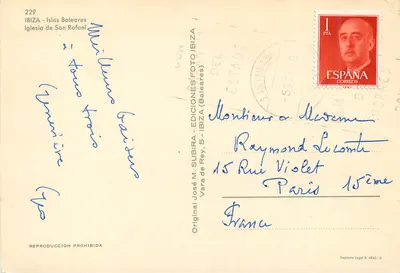 229
IBIZA - Islas Baleares
Iglesia de San Rafael
Meilleurs baisers
à tous trois
Geneviève
REPRODUCCION PROHIBIDA
Original José M. SUBIRA - EDICIONES FOTO IBIZA
Vara de Rey, 5 - IBIZA (Baleares)
1
PTA
ESPAÑA
CORREOS
Monsieur et Madame
Raymond Lecomte
15 Rue Violet
Paris 15ème
France